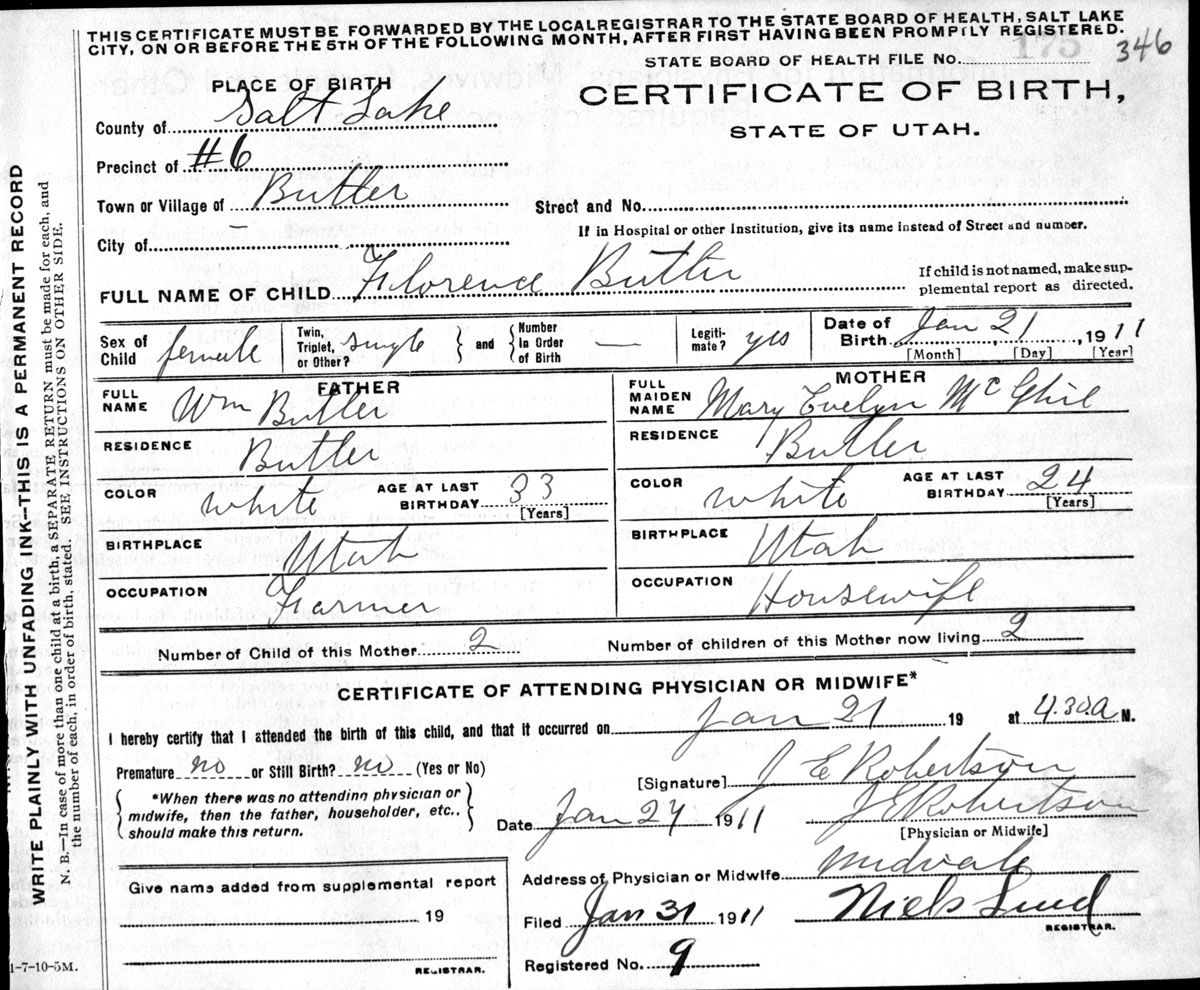 THIS CERTIFICATE MUST BE FORWARDED BY THE LOCAL REGISTRAR TO THE STATE BOARD OF HEALTH, SALT LAKE
CITY, ON OR BEFORE THE 5TH OF THE FOLLOWING MONTH, AFTER FIRST HAVING BEEN PROMPTLY REGISTERED.
346
STATE BOARD OF HEALTH FILE No.
175
CERTIFICATE OF BIRTH,
STATE OF UTAH.
PLACE OF BIRTH
County of Salt Lake
Precinct of #6
Town or Village of Butler
Street and No.
City of —
If in Hospital or other Institution, give its name instead of Street and number.
FULL NAME OF CHILD Florence Butler
If child is not named, make sup-
plemental report as directed.
Sex of Child female
Twin, Triplet, or Other? single
and
Number In Order of Birth —
Legiti- mate? yes
Date of Birth Jan 21, 1911
[Month] [Day] [Year]
FATHER
FULL NAME Wm Butler
RESIDENCE Butler
COLOR white
AGE AT LAST BIRTHDAY 33
[Years]
BIRTHPLACE Utah
OCCUPATION Farmer
MOTHER
FULL MAIDEN NAME Mary Evelyn
RESIDENCE Butler
COLOR white
AGE AT LAST BIRTHDAY 24
[Years]
BIRTHPLACE Utah
OCCUPATION Housewife
Number of Child of this Mother 2
Number of children of this Mother now living 2
CERTIFICATE OF ATTENDING PHYSICIAN OR MIDWIFE*
I hereby certify that I attended the birth of this child, and that it occurred on Jan 21 19 at 4.30a M.
Premature no or Still Birth? no (Yes or No)
[Signature] J E Robertson
*When there was no attending physician or
midwife, then the father, householder, etc.,
should make this return.
Date Jan 24 1911
J E Robertson
[Physician or Midwife]
Address of Physician or Midwife Midvale
Give name added from supplemental report
19
REGISTRAR.
Filed Jan 31 1911
Niels Lind
REGISTRAR.
Registered No. 9
1-7-10-5M.
WRITE PLAINLY WITH UNFADING INK—THIS IS A PERMANENT RECORD
N. B.—In case of more than one child at a birth, a SEPARATE RETURN must be made for each, and
the number of each, in order of birth, stated. SEE INSTRUCTIONS ON OTHER SIDE.